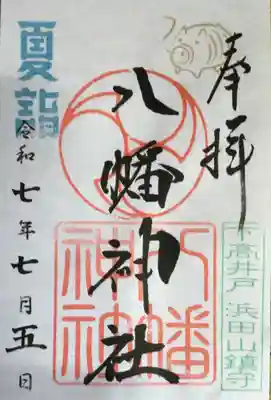 奉拝
下高井戸 浜田山鎮守
八幡神社
八幡
神社
夏詣
令和七年七月五日